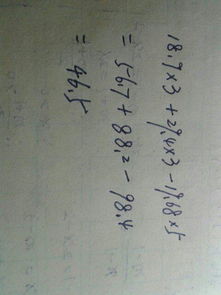 18.9×3+29.4×3-19.68×5
=56.7+88.2-98.4
=46.5